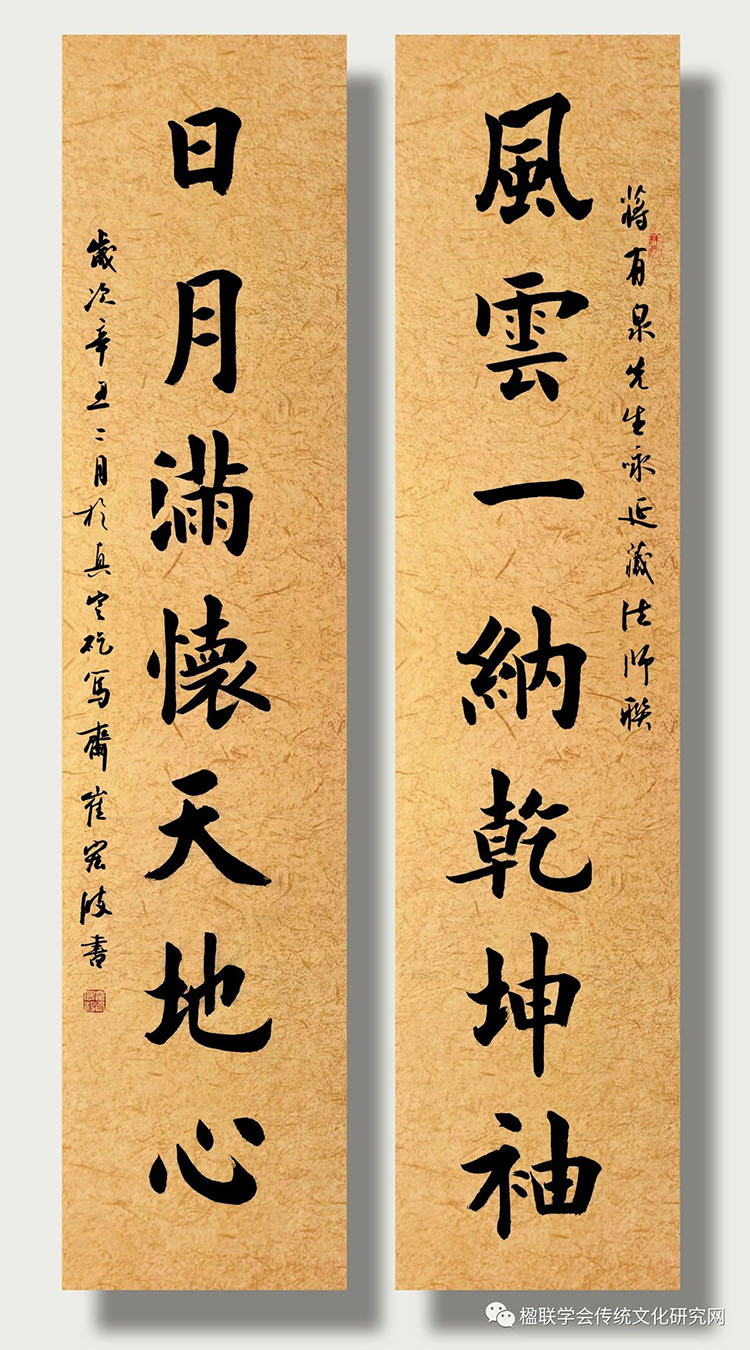 蔣有泉先生咏延藏法师联
風雲一納乾坤袖
日月滿懷天地心
歲次辛丑二月於真定矻写齋崔宏波書
楹联学会传统文化研究网